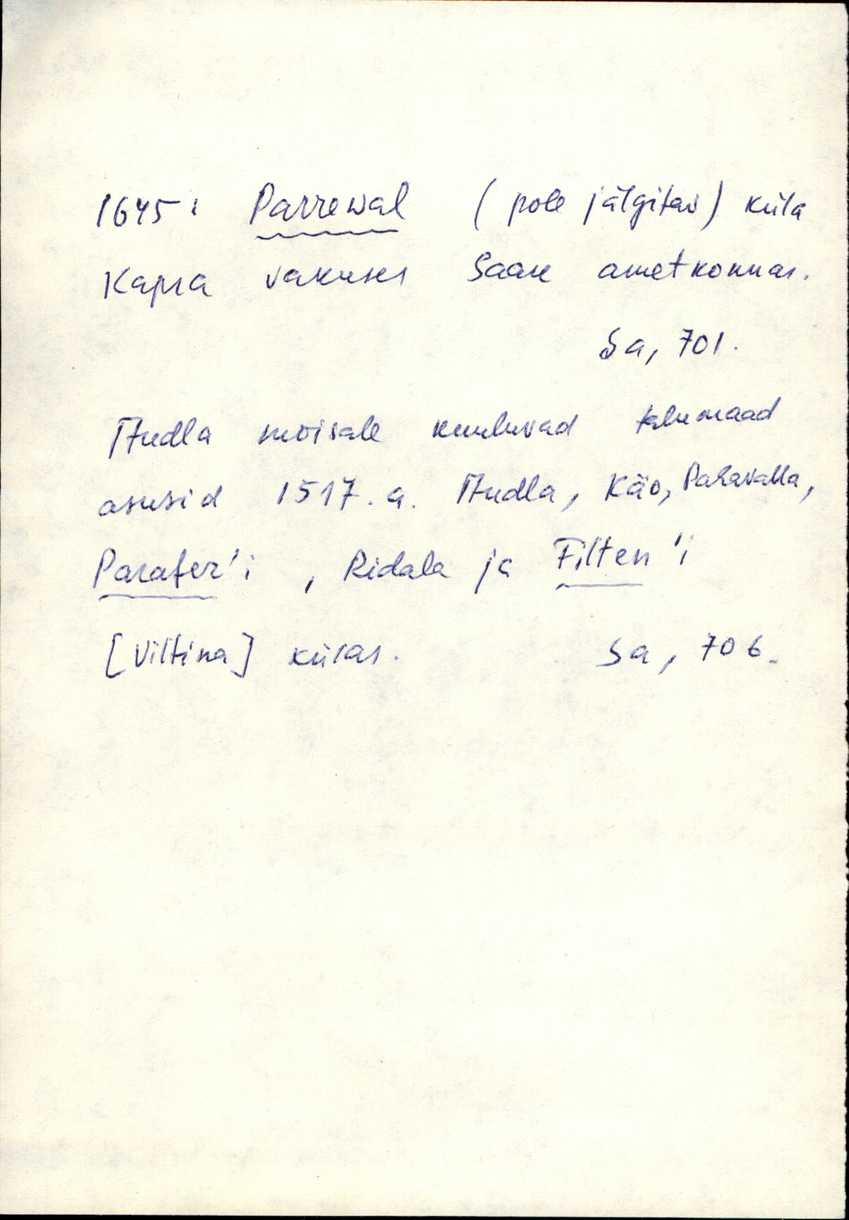 1645: Parrewal (pole jälgitav) küla
Kapra vakuses Saare ametkonnas.
Sa, 701.
Audla mõisale kuuluvad talumaad
asusid 1517. a. Audla, Käo, Paravalla,
Parafer'i, Ridala ja Filten'i
[Viltina] külas.
Sa, 706.